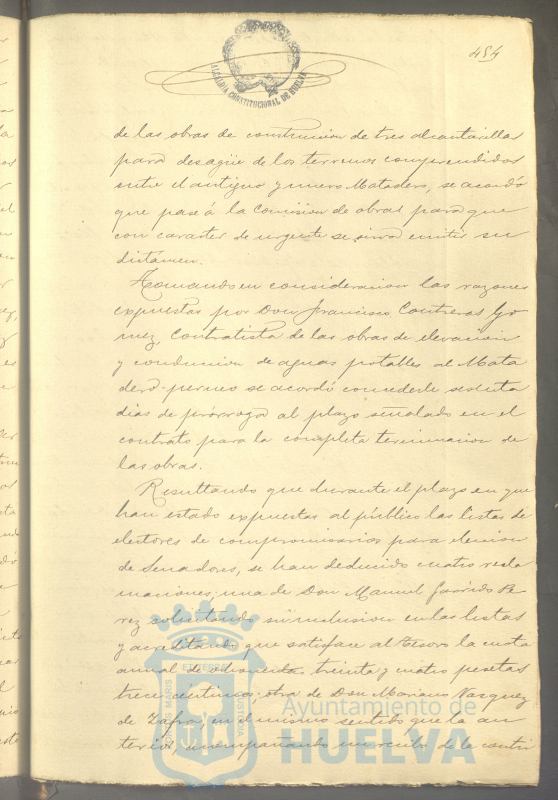 484
ALCALDIA CONSTITUCIONAL DE HUELVA
de las obras de construccion de tres alcantarillas
para desagüe de los terrenos comprendidos
entre el antiguo y nuevo Matadero, se acordó
que pase á la Comision de obras para que
con caracter de urgente se sirva emitir su
dictámen.
Tomando en consideracion las razones
expuestas por Don Francisco Contreras Gó
mez, Contratista de las obras de elevacion
y conduccion de aguas potables al Mata
dero se acordó concederle sesenta
dias de prórroga al plazo señalado en el
contrato para la completa terminacion de
las obras.
Resultando que durante el plazo en que
han estado expuestas al público las listas de
electores de compromisarios para eleccion
de Senadores, se han deducido cuatro recla
maciones; una de Don Manuel Garrido Pe
rez solicitando su inclusion en las listas
y acreditando que satisface al Tesoro la cuota
anual de treinta y cuatro pesetas
trece céntimos; otra de Don Mariano Vazquez
de Zafra, en el mismo sentido que la an
terior, acompañando un recibo de la contri
Ayuntamiento de
HUELVA